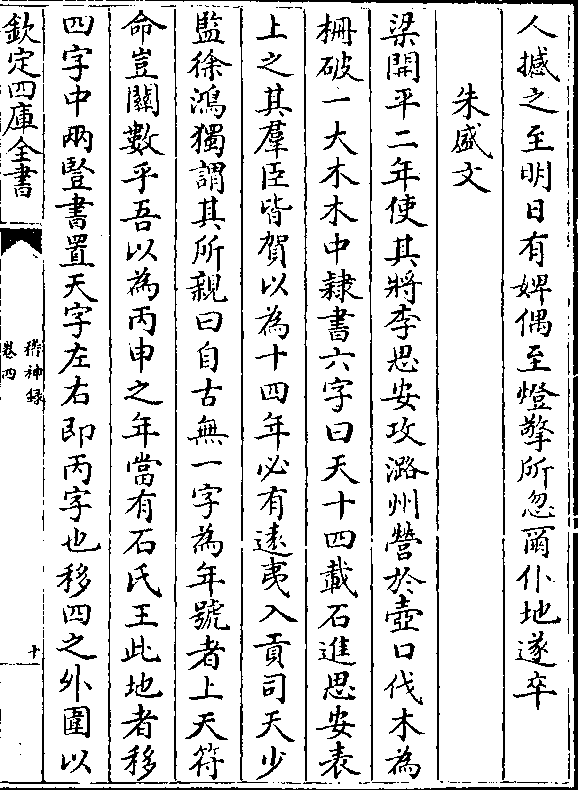 人撼之至明日有婢偶至燈擎所忽爾仆地遂卒
朱盛文
梁開平二年使其將李思安攻潞州營於壺口伐木為
栅破一大木木中隸書六字曰天十四載石進思安表
上之其羣臣皆賀以為十四年必有遠夷入貢司天少
監徐鴻獨謂其所親曰自古無一字為年號者上天符
命豈闗數乎吾以為丙申之年當有石氏王此地者移
四字中兩豎書置天字左右即丙字也移四之外圍以
欽定四庫全書
稽神録
卷四
十